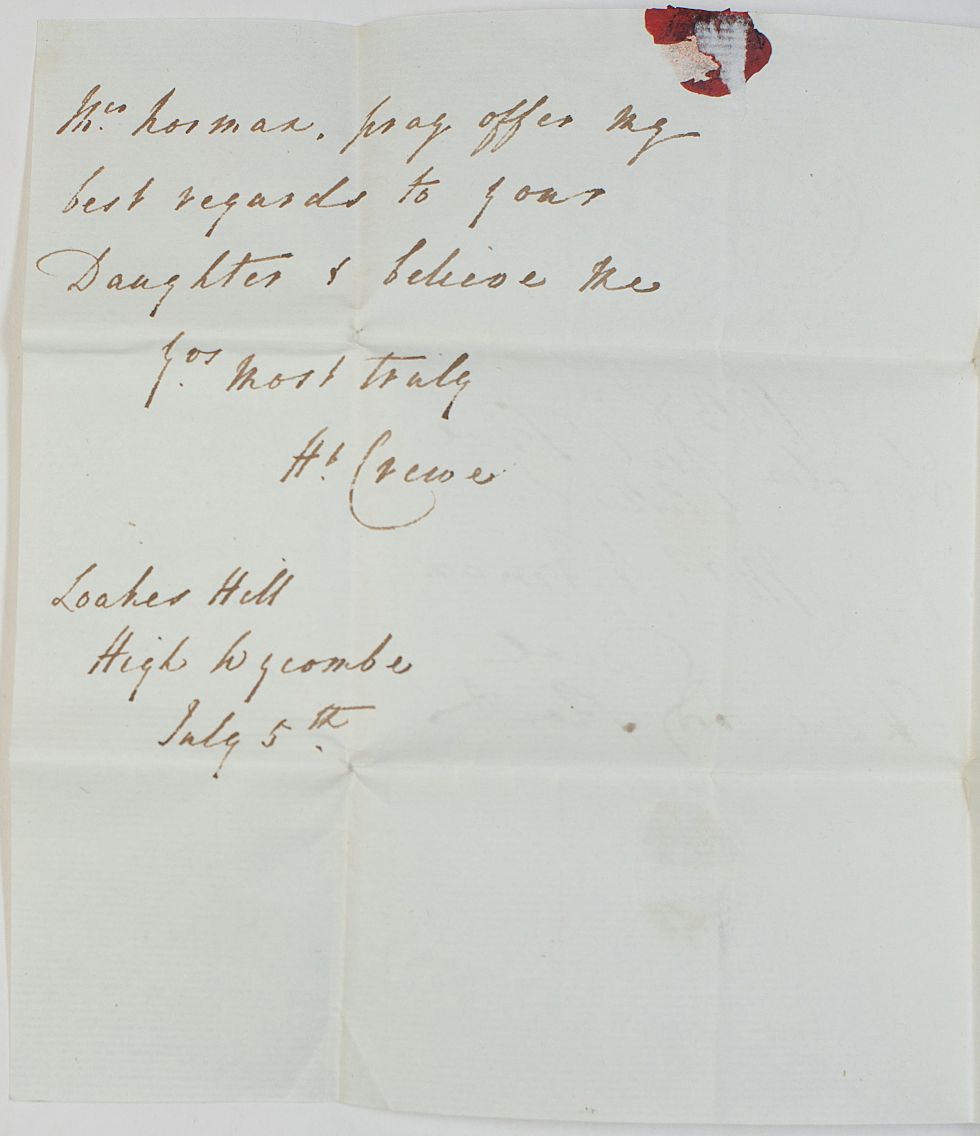 Mrs. Norman, pray offer my
best regards to your
Daughter & believe me
yrs. most truly
Ht. Crewe
Loakes Hill
High Wycombe
July 5th.